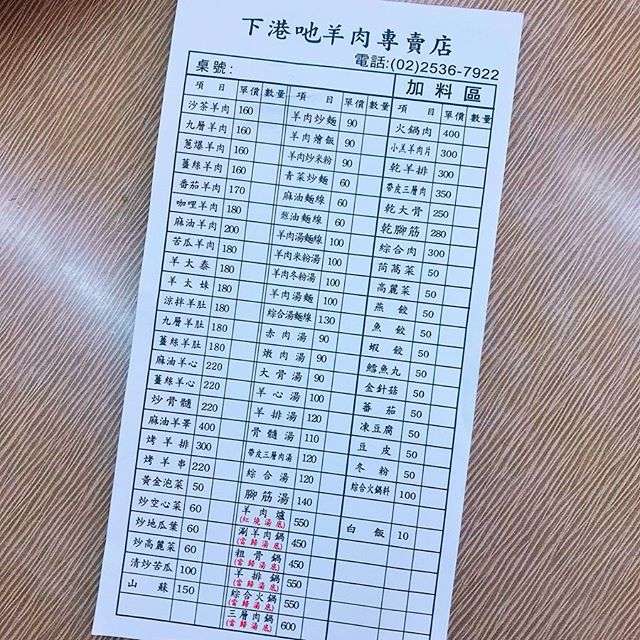 下港吔羊肉專賣店
電話:(02)2536-7922
桌號:
項目 單價 數量
沙茶羊肉 160
九層羊肉 160
蔥爆羊肉 160
薑絲羊肉 160
番茄羊肉 170
咖哩羊肉 180
麻油羊肉 200
苦瓜羊肉 180
羊太泰 180
羊太妹 180
涼拌羊肚 180
九層羊肚 180
薑絲羊肚 180
麻油羊心 220
薑絲羊心 220
炒骨髓 220
麻油羊睪 400
烤羊排 300
烤羊串 220
黃金泡菜 50
炒空心菜 60
炒地瓜葉 60
炒高麗菜 60
清炒苦瓜 100
山蘇 150
項目 單價 數量
羊肉炒麵 90
羊肉燴飯 90
羊肉炒米粉 90
青菜炒麵 60
麻油麵線 60
蔥油麵線 60
羊肉湯麵線 100
羊肉米粉湯 100
羊肉冬粉湯 100
羊肉湯麵 100
綜合湯麵線 130
赤肉湯 90
嫩肉湯 90
大骨湯 90
羊心湯 100
羊排湯 120
骨髓湯 110
帶皮三層肉湯 120
綜合湯 120
腳筋湯 140
羊肉爐 550
(紅燒湯底)
涮羊肉鍋 450
(當歸湯底)
粗骨鍋 450
(當歸湯底)
羊排鍋 550
(當歸湯底)
綜合火鍋 550
(當歸湯底)
三層肉鍋 600
(當歸湯底)
加料區
項目 單價 數量
火鍋肉 400
小羔羊肉片 300
乾羊排 300
帶皮三層肉 350
乾大骨 250
乾腳筋 280
綜合肉 300
茼萵菜 50
高麗菜 50
燕餃 50
魚餃 50
蝦餃 50
鱈魚丸 50
金針菇 50
蕃茄 50
凍豆腐 50
豆皮 50
冬粉 50
綜合火鍋料 100
白飯 10